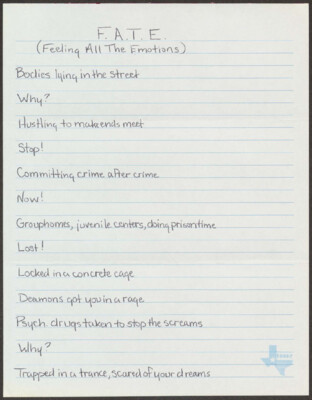 F.A.T.E.
(Feeling All The Emotions)
Bodies lying in the street
Why?
Hustling to make ends meet
Stop!
Committing crime after crime
Now!
Grouphomes, juvenile centers, doing prison time
Lost!
Locked in a concrete cage
Deamons got you in a rage
Psych drugs taken to stop the screams
Why?
Trapped in a trance, scared of your dreams